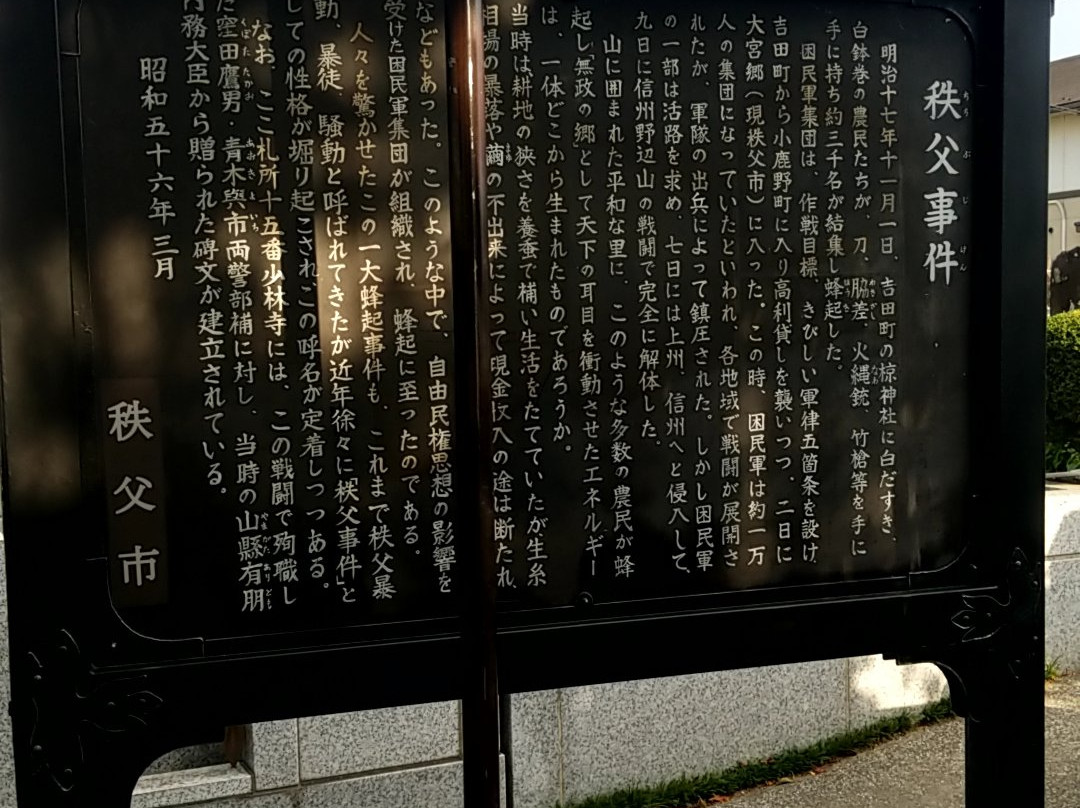 秩父事件
ちちぶじけん
明治十七年十一月一日、吉田町の椋神社に白だすき、
白鉢巻の農民たちが、刀、脇差、火縄銃、竹槍等を手に
手に持ち約三千名が結集し蜂起した。
困民軍集団は、作戦目標、きびしい軍律五箇条を設け
吉田町から小鹿野町に入り高利貸しを襲いつつ、二日に
大宮郷(現秩父市)に入った。この時、困民軍は約一万
人の集団になっていたといわれ、各地域で戦闘が展開さ
れたが、軍隊の出兵によって鎮圧された。しかし困民軍
の一部は活路を求め、七日には上州、信州へと侵入して、
九日に信州野辺山の戦闘で完全に解体した。
山に囲まれた平和な里に、このような多数の農民が蜂
起し「無政の郷」として天下の耳目を衝動させたエネルギー
は、一体どこから生まれたものであろうか。
当時は耕地の狭さを養蚕で補い生活をたてていたが生糸
相場の暴落や繭の不出来によって現金収入の途は断たれ
などもあった。このような中で、自由民権思想の影響を
受けた困民軍集団が組織され、蜂起に至ったのである。
人々を驚かせたこの一大蜂起事件も、これまで秩父暴
動、暴徒、騒動と呼ばれてきたが近年徐々に「秩父事件」と
しての性格が堀り起こされこの呼名が定着しつつある。
なお、ここ札所十五番少林寺には、この戦闘で殉職し
た窪田鷹男・青木與市両警部補に対し、当時の山縣有朋
内務大臣から贈られた碑文が建立されている。
昭和五十六年三月
秩父市